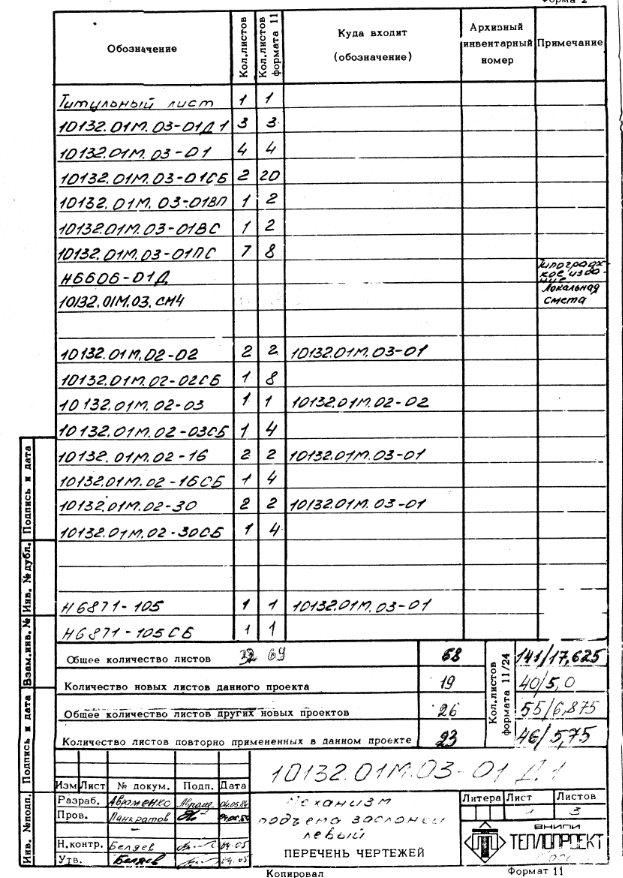 Форма 2
Обозначение Кол.листов Кол.листов формата 11 Куда входит (обозначение) Архивный инвентарный номер Примечание
Титульный лист 1 1
10132.01М.03-01Д1 3 3
10132.01М.03-01 4 4
10132.01М.03-01СБ 2 20
10132.01М.03-01ВП 1 2
10132.01М.03-01ВС 1 2
10132.01М.03-01ПС 7 8
Н6606-01Д Типографское издание
10132.01М.03.СМ4 Локальная смета
10132.01М.02-02 2 2 10132.01М.03-01
10132.01М.02-02СБ 1 8
10132.01М.02-03 1 1 10132.01М.02-02
10132.01М.02-03СБ 1 4
10132.01М.02-16 2 2 10132.01М.03-01
10132.01М.02-16СБ 1 4
10132.01М.02-30 2 2 10132.01М.03-01
10132.01М.02-30СБ 1 4
Н6871-105 1 1 10132.01М.03-01
Н6871-105СБ 1 1
Общее количество листов 69 68 141/17,625
Количество новых листов данного проекта 19 40/5,0
Общее количество листов других новых проектов 26 55/6,875
Количество листов повторно примененных в данном проекте 23 46/5,75
Кол.листов формата 11/24
Инв. №подл. Подпись и дата Взам.инв.№ Инв. №дубл. Подпись и дата
10132.01М.03-01Д1
Изм Лист № докум. Подп. Дата
Разраб. Авраменко
Пров. Панкратов
Н.контр. Беляев
Утв. Беляев
Механизм
подъема заслонки
левый
ПЕРЕЧЕНЬ ЧЕРТЕЖЕЙ
Литера Лист Листов
1 3
ВНИПИ
ТЕПЛОПРОЕКТ
Копировал Формат 11